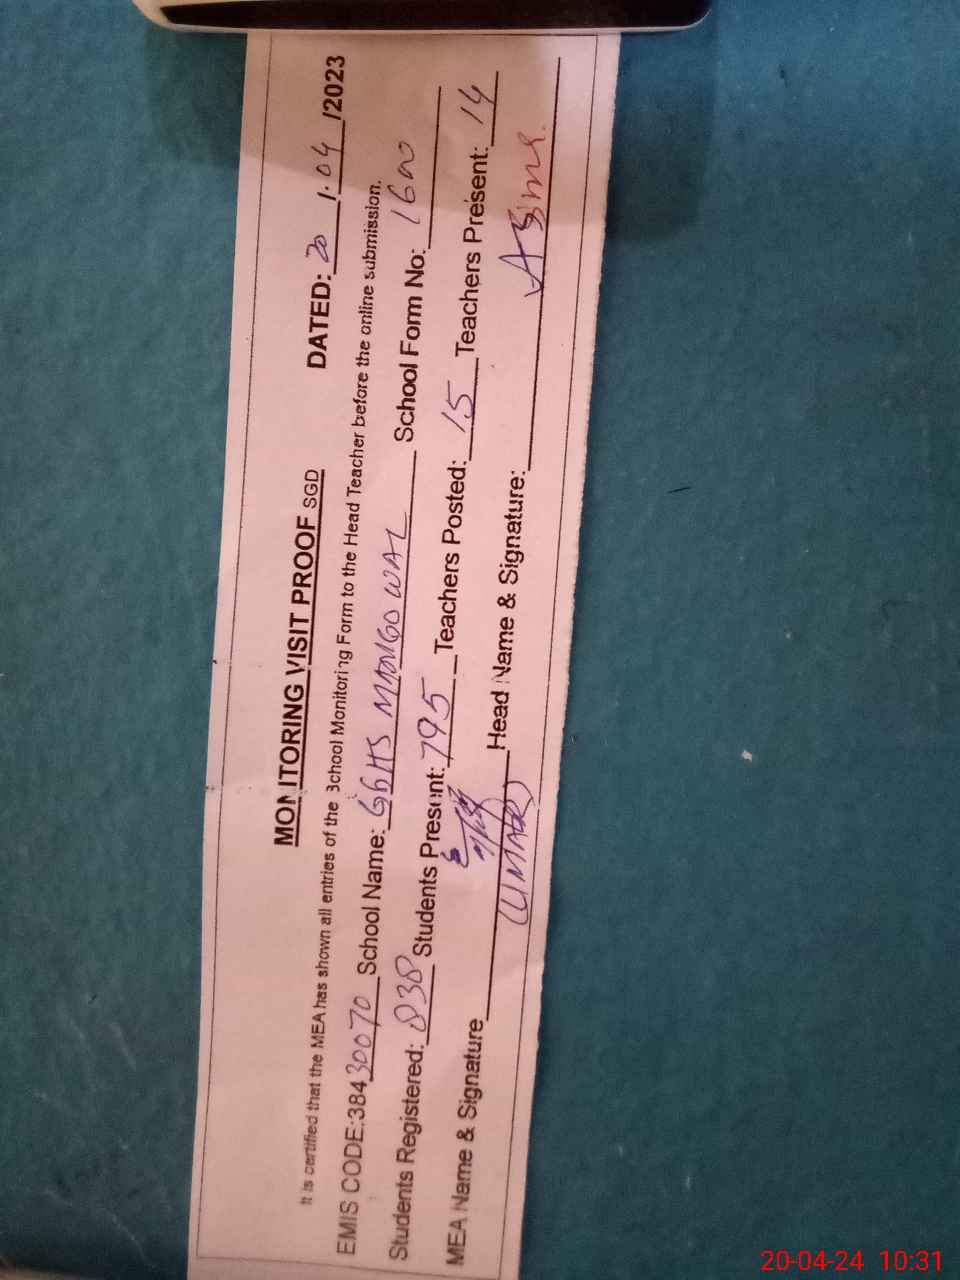 MONITORING VISIT PROOF SGD DATED: 20 /.04 /2023
It is certified that the MEA has shown all entries of the School Monitoring Form to the Head Teacher before the online submission.
EMIS CODE:38430070 School Name: GGHS MANGOWAL School Form No: 1600
Students Registered: 838 Students Present: 795 Teachers Posted: 15 Teachers Present: 14
MEA Name & Signature (UMAR) Head Name & Signature:
20-04-24 10:31